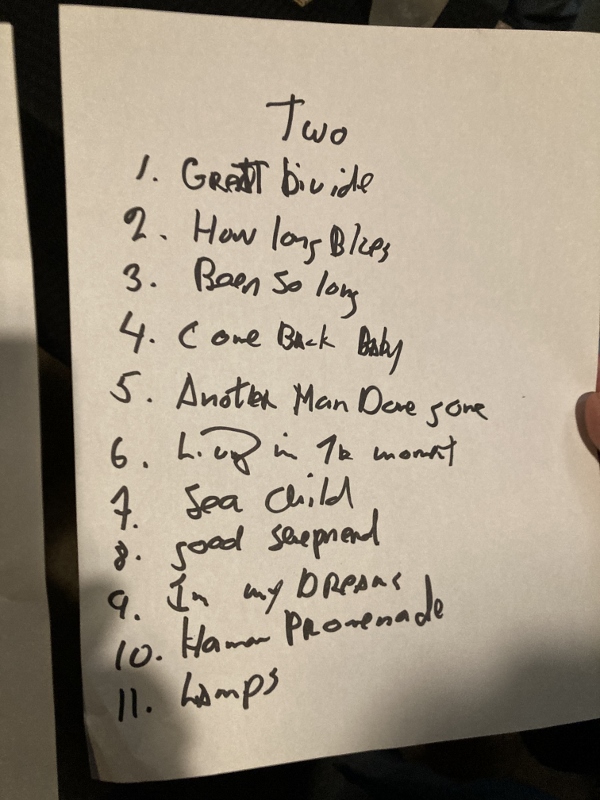 Two
1. Great Divide
2. How long Blues
3. Been So long
4. Come Back Baby
5. Another Man Done gone
6. Living in The moment
7. Sea Child
8. good shepherd
9. In my Dreams
10. Haman Promenade
11. Lamps